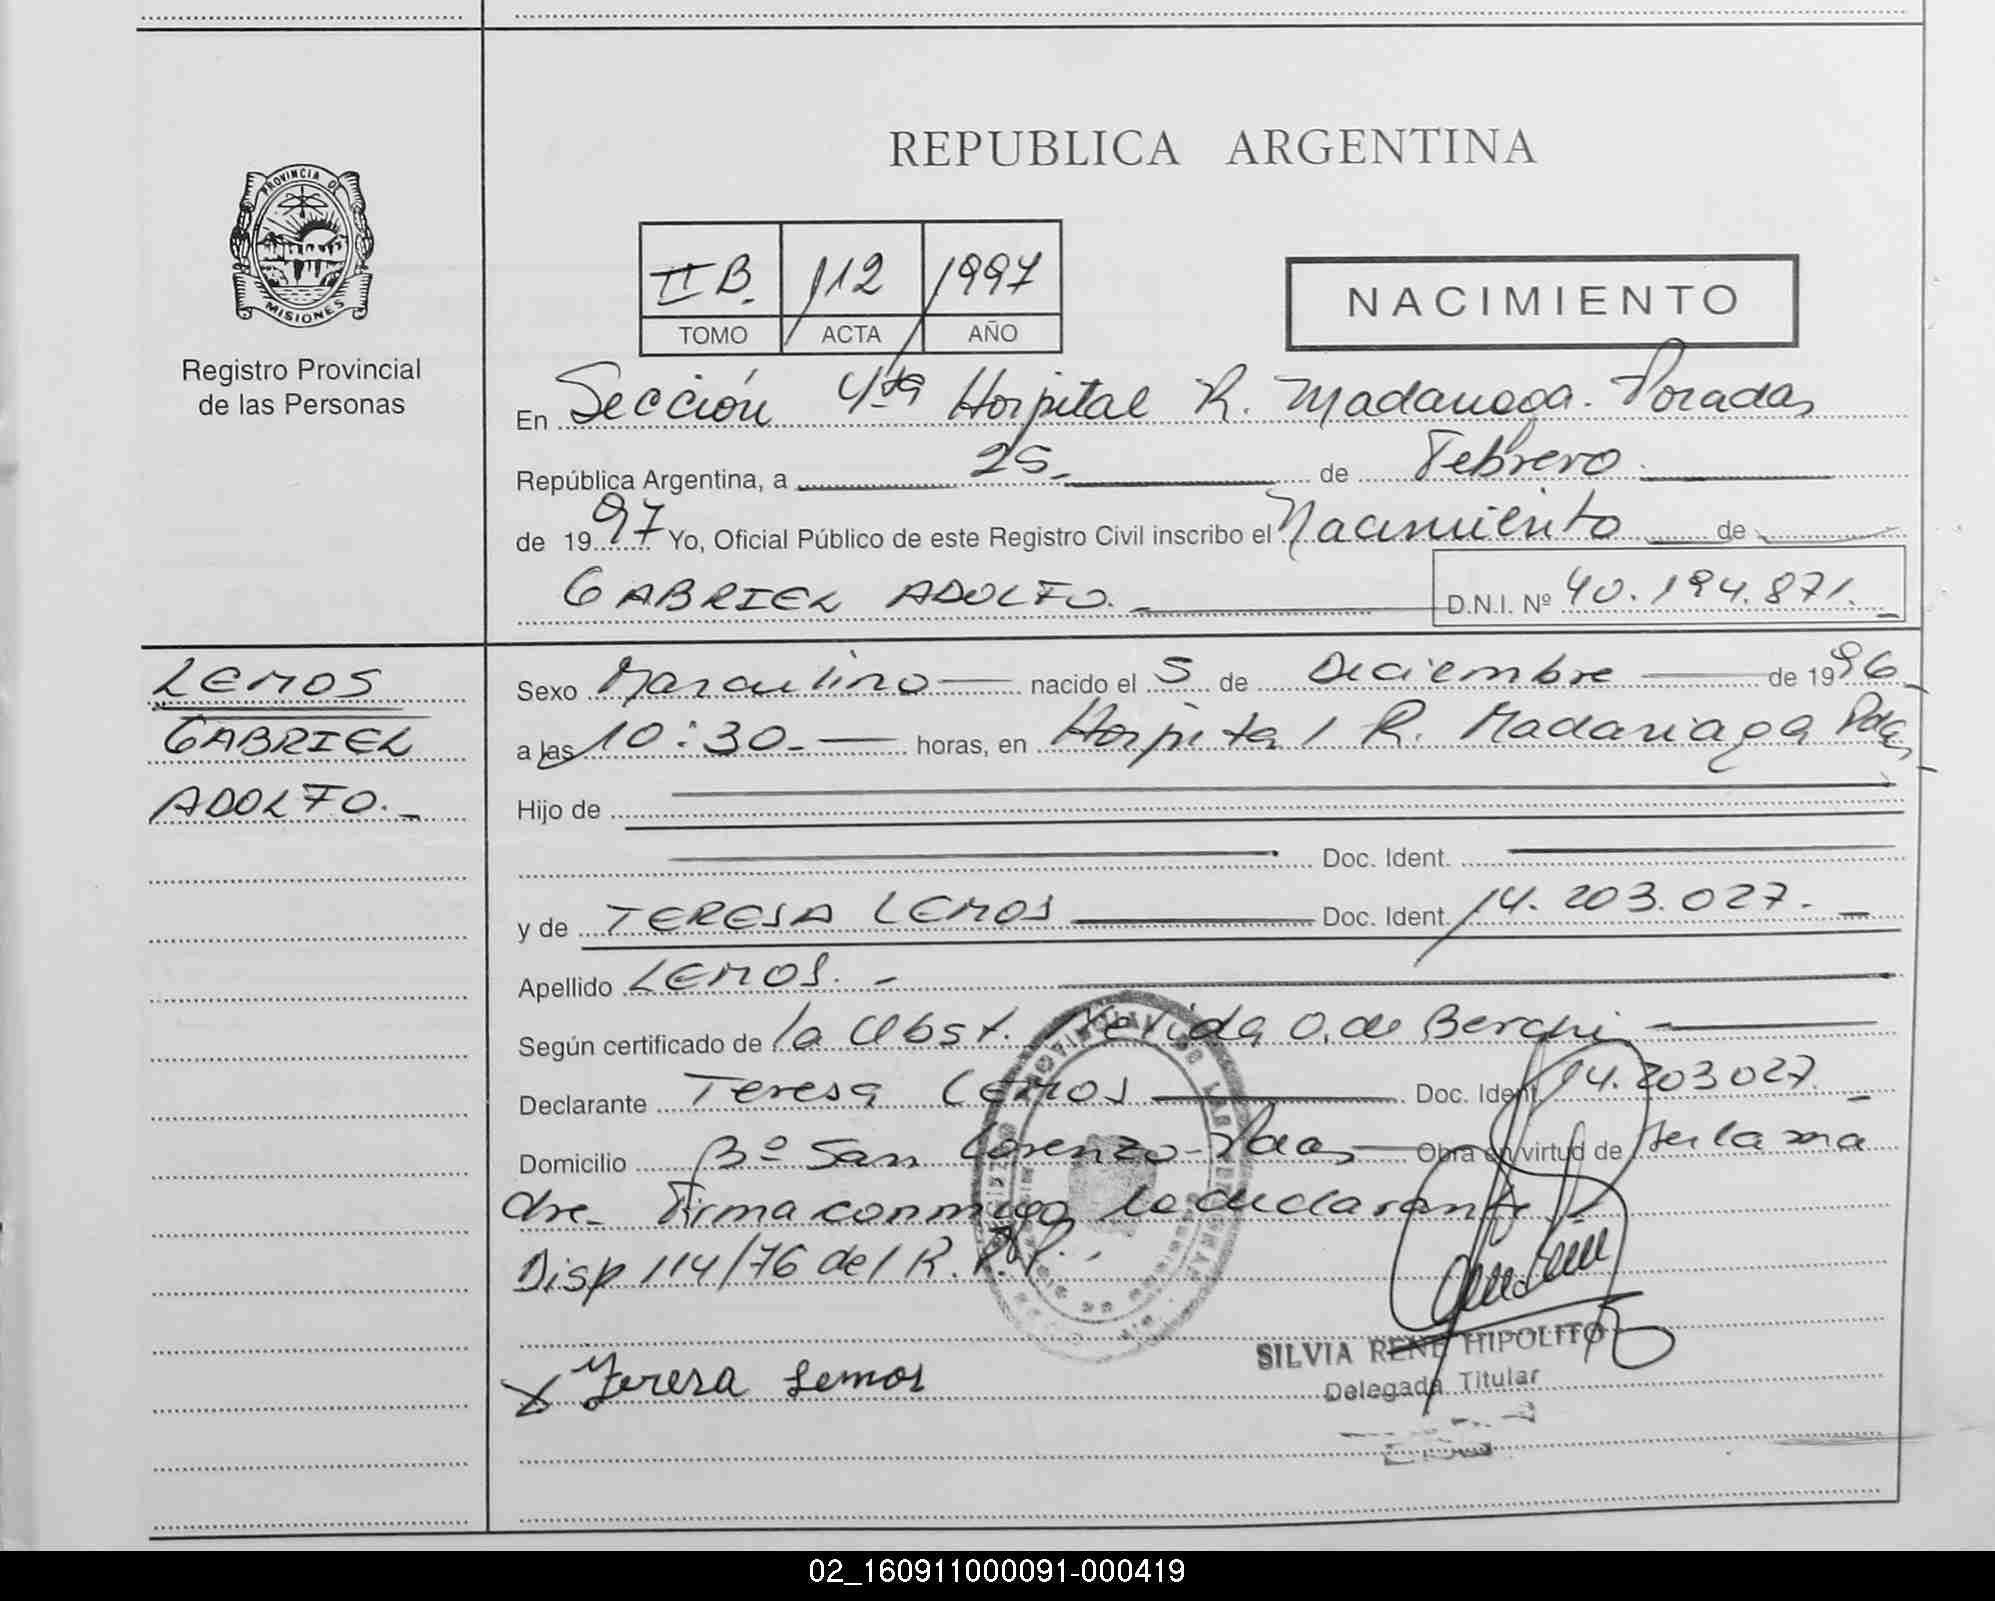 REPUBLICA ARGENTINA
PROVINCIA DE
MISIONES
Registro Provincial
de las Personas
II B. 112 1997
TOMO ACTA AÑO
NACIMIENTO
En Sección 4ta Hospital R. Madariaga. Posadas
República Argentina, a 25 de Febrero
de 1997 Yo, Oficial Público de este Registro Civil inscribo el Nacimiento de
GABRIEL ADOLFO. D.N.I. Nº 40.194.871.
LEMOS
GABRIEL
ADOLFO.
Sexo Masculino nacido el 5 de Diciembre de 1996
a las 10:30 horas, en Hospital R. Madariaga Pdas
Hijo de
Doc. Ident.
y de TERESA LEMOS Doc. Ident. 14.203.027.
Apellido LEMOS.
Según certificado de la Obst. Nélida O. de Berchi
Declarante Teresa Lemos Doc. Ident. 14.203027
Domicilio Bº San Lorenzo-Pdas Obra en virtud de ser la ma
dre Firma conmigo la declarante
Disp 114/76 del R.P.P.
SILVIA RENE HIPOLITO
Delegada Titular
X Teresa Lemos
02_160911000091-000419